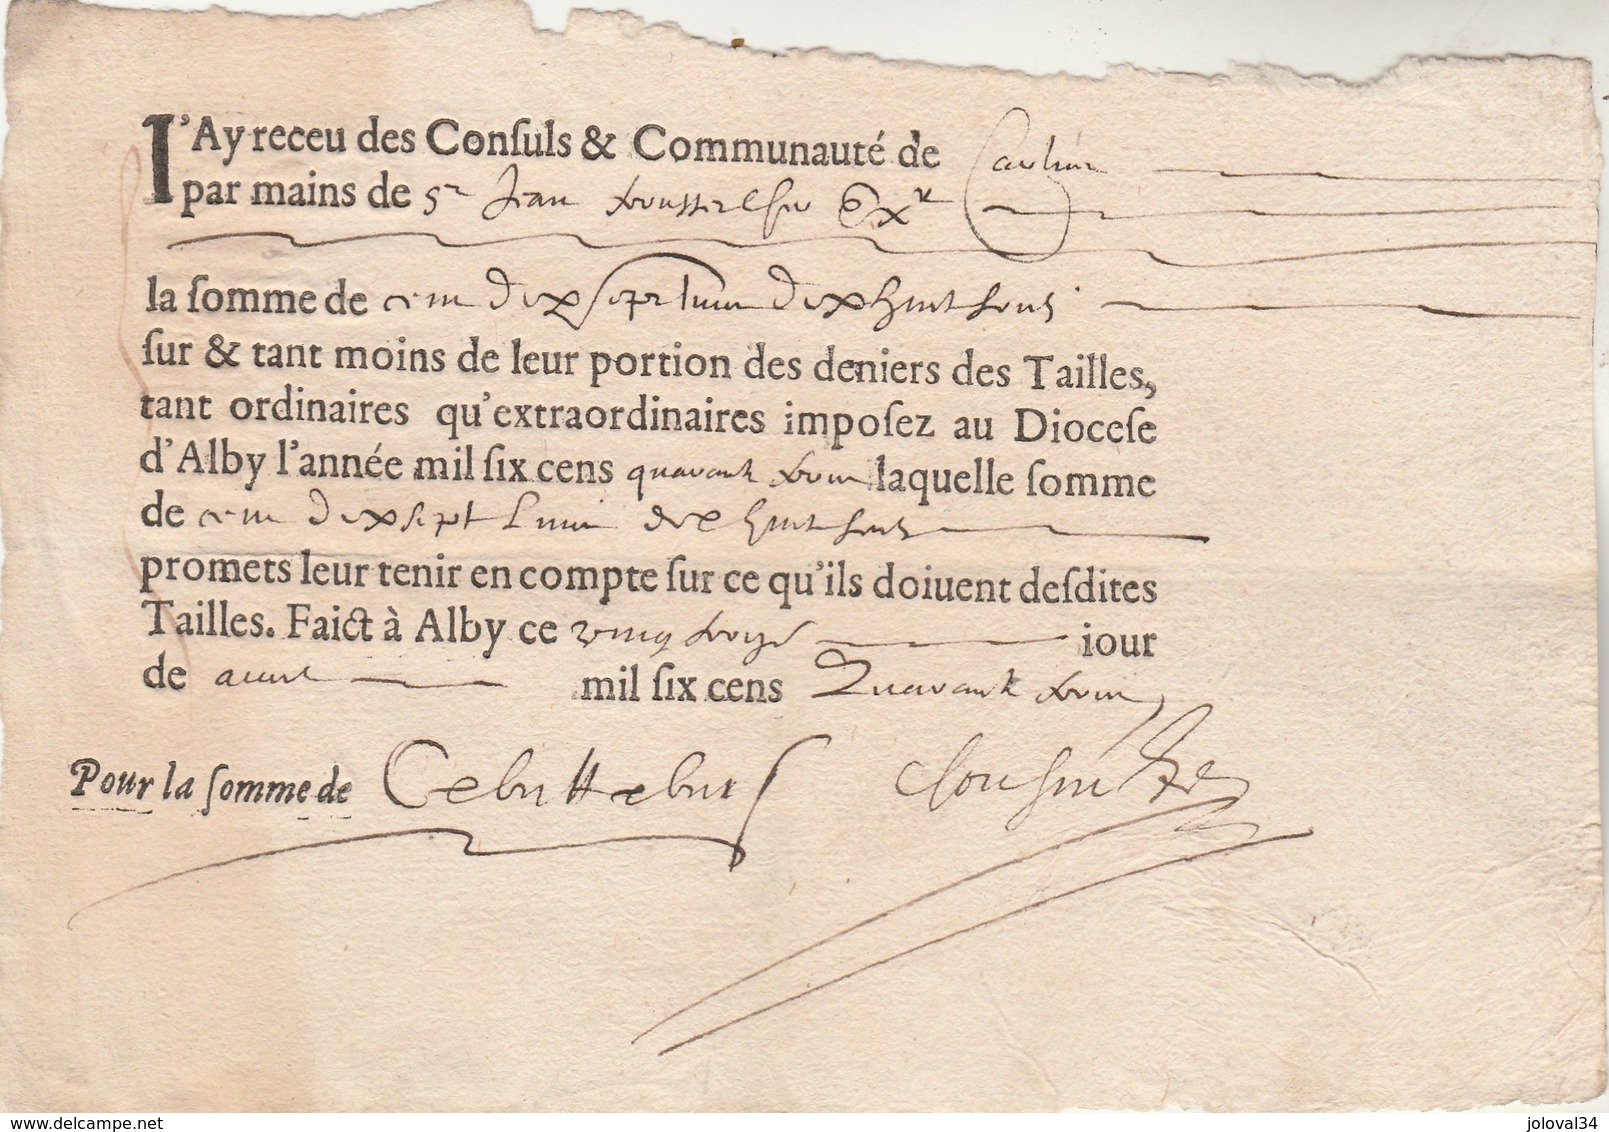 I'Ay receu des Conſuls & Communauté de
par mains de Sr Jean
la ſomme de cent dix sept livres dix huit sous
ſur & tant moins de leur portion des deniers des Tailles,
tant ordinaires qu'extraordinaires impoſez au Dioceſe
d'Alby l'année mil ſix cens quarante trois laquelle ſomme
de cent dix sept livres dix huit sous
promets leur tenir en compte ſur ce qu'ils doiuent deſdites
Tailles. Faict à Alby ce vingt troys iour
de avril mil ſix cens Quarante trois
Pour la ſomme de
www.delcampe.net
joloval34